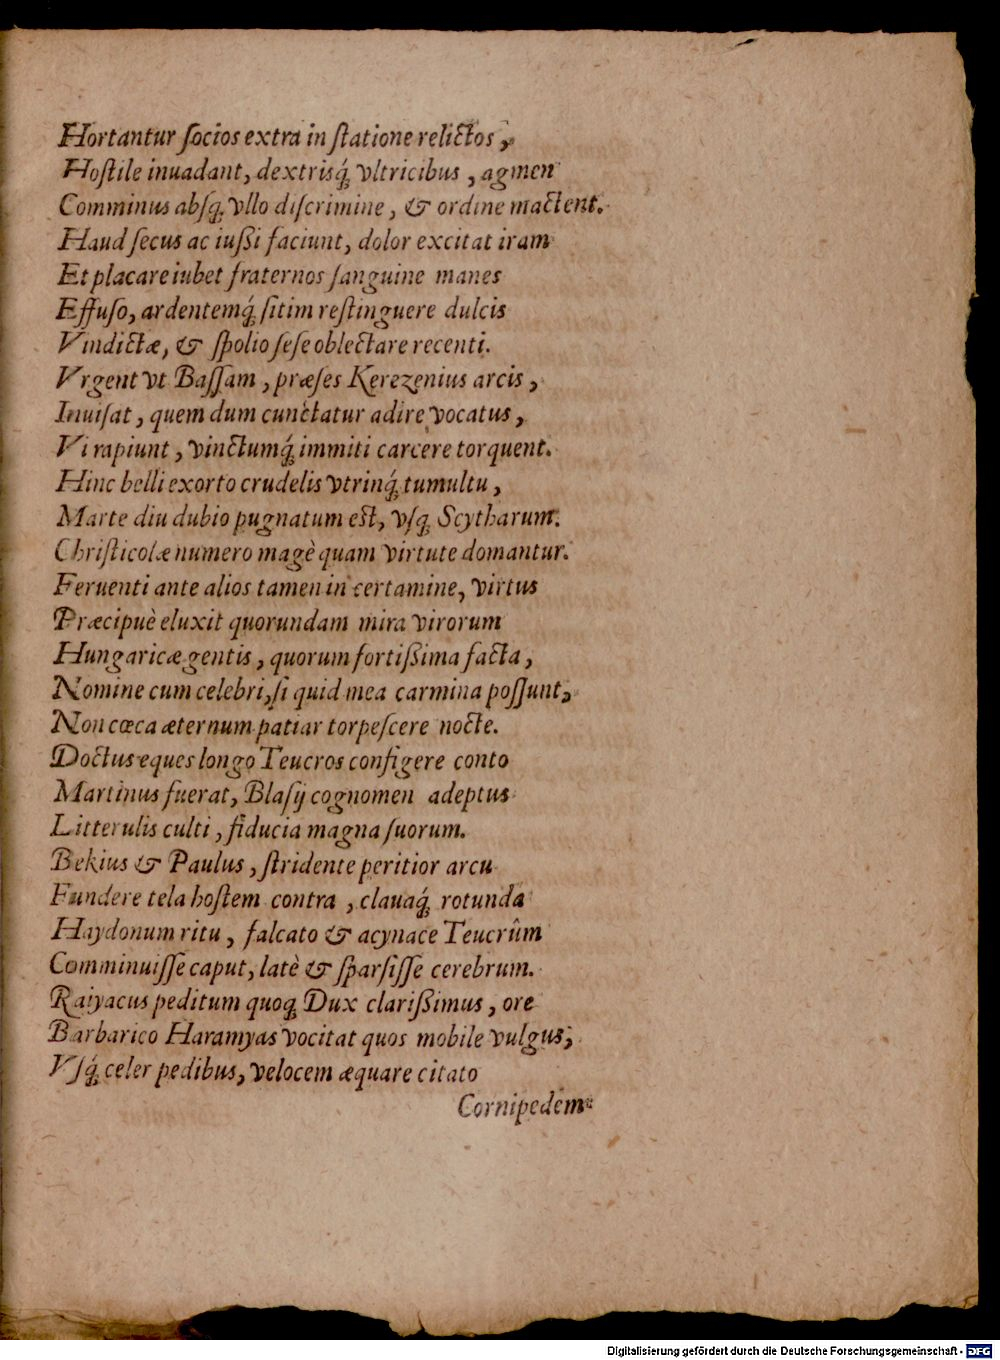 Hortantur ſocios extra in ſtatione relictos,
Hoſtile inuadant, dextrisq́; vltricibus, agmen
Comminus abſq; vllo diſcrimine, & ordine mactent.
Haud ſecus ac iuſſi faciunt, dolor excitat iram
Et placare iubet fraternos ſanguine manes
Effuſo, ardentemq́; ſitim reſtinguere dulcis
Vindictæ, & ſpolio ſeſe oblectare recenti.
Vrgent vt Baſſam, præſes Kerezenius arcis,
Inuiſat, quem dum cunctatur adire vocatus,
Vi rapiunt, vinctumq́; immiti carcere torquent.
Hinc belli exorto crudelis vtrinq́; tumultu,
Marte diu dubio pugnatum eſt, vſq; Scytharum.
Chriſticolæ numero magè quam virtute domantur.
Feruenti ante alios tamen in certamine, virtus
Præcipuè eluxit quorundam mira virorum
Hungaricæ gentis, quorum fortißima facta,
Nomine cum celebri, ſi quid mea carmina poſſunt,
Non cœca æternum patiar torpeſcere nocte.
Doctus eques longo Teucros configere conto
Martinus fuerat, Blaſij cognomen adeptus
Litterulis culti, fiducia magna ſuorum.
Bekius & Paulus, ſtridente peritior arcu
Fundere tela hoſtem contra, clauaq́; rotunda
Haydonum ritu, falcato & acynace Teucrûm
Comminuiſſe caput, latè & ſparſiſſe cerebrum.
Raiyacus peditum quoq; Dux clarißimus, ore
Barbarico Haramyas vocitat quos mobile vulgus,
Vſq́; celer pedibus, velocem æquare citato
Cornipedem
Digitalisierung gefördert durch die Deutsche Forschungsgemeinschaft - DFG